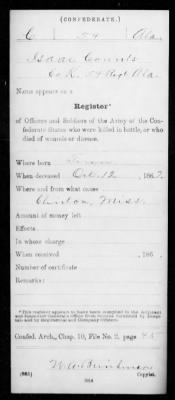 (CONFEDERATE.)
C 54 Ala.
Isaac Counts
Co. K, 54 Regt. Ala.
Name appears on a
Register*
of Officers and Soldiers of the Army of the Con-
federate States who were killed in battle, or who
died of wounds or disease.
Where born
When deceased Oct. 12, 1862.
Where and from what cause
Clinton, Miss.
Amount of money left
Effects
In whose charge
When received , 186 .
Number of certificate
Remarks:
*This register appears to have been compiled in the Adjutant
and Inspector General's office from reports furnished by
and by Inspectors and Company Officers.
Confed. Arch., Chap. 10, File No. 2, page
(635)
Copyist.